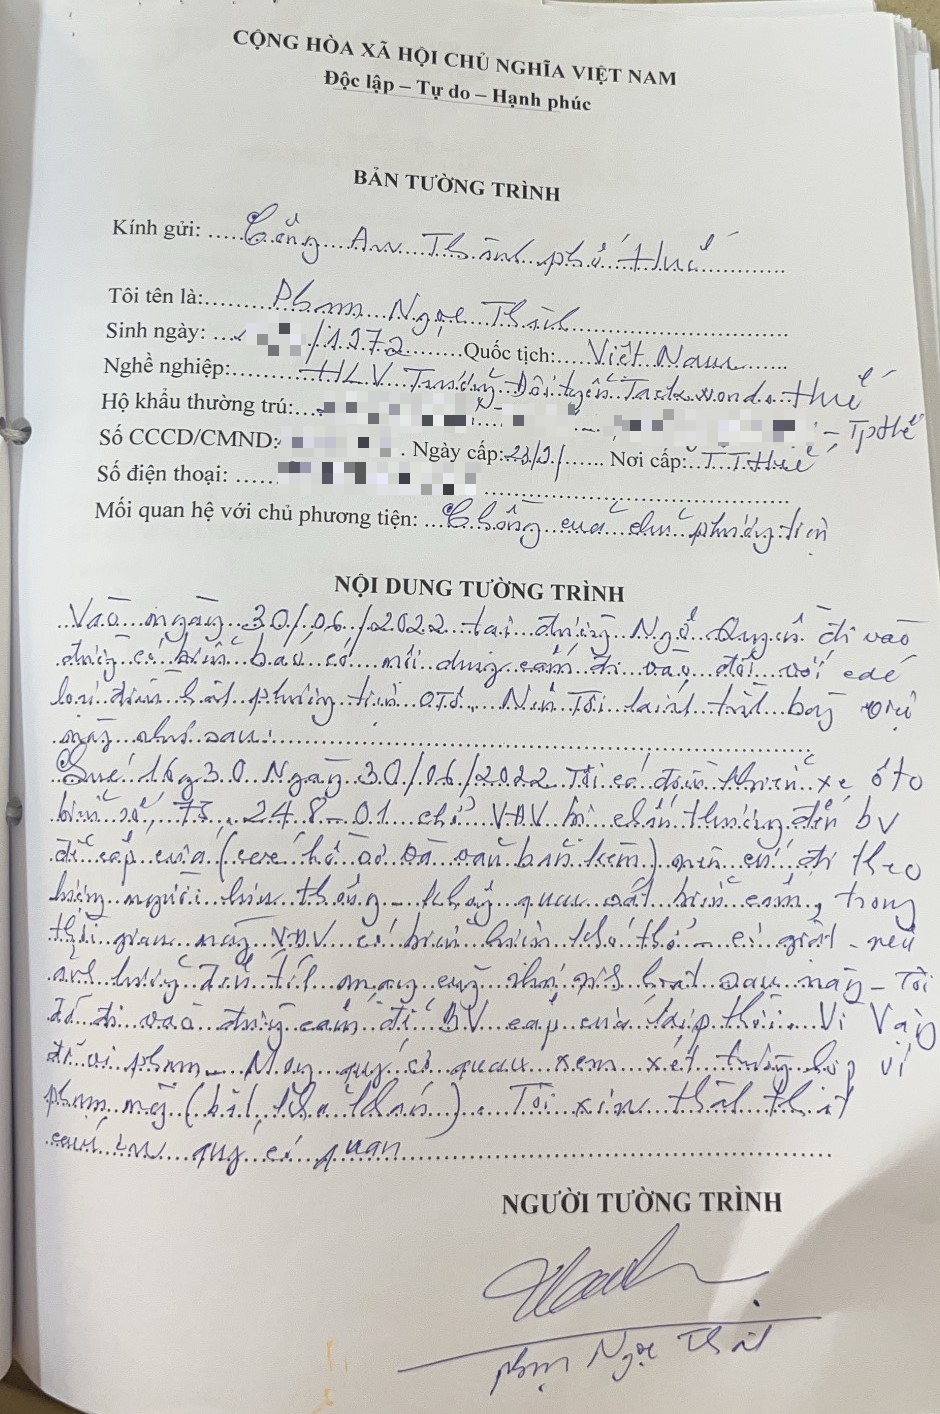 CỘNG HÒA XÃ HỘI CHỦ NGHĨA VIỆT NAM
Độc lập – Tự do – Hạnh phúc
BẢN TƯỜNG TRÌNH
Kính gửi: Công An Thành phố Huế
Tôi tên là: Phạm Ngọc
Sinh ngày: /1972 Quốc tịch: Việt Nam
Nghề nghiệp: HLV Trưởng Đội tuyển Taekwondo Huế
Hộ khẩu thường trú: - Tp Huế
Số CCCD/CMND: . Ngày cấp: 23/9/ Nơi cấp: TTHuế
Số điện thoại:
Mối quan hệ với chủ phương tiện: Chồng của chủ phương tiện
NỘI DUNG TƯỜNG TRÌNH
Vào ngày 30/06/2022 tại đường Ngô Quyền đi vào
đường có biển báo có nội dung cấm đi vào đối với các
phương tiện ô tô. Nên Tôi trình bày
này như sau:
16g30 Ngày 30/06/2022 Tôi có điều khiển xe ô to
biển số, 75 . 248-01 chở VĐV bị chấn thương đến bv
để cấp cứu ( hồ sơ kèm) nên có đi theo
hướng không quan sát biển cấm, trong
thời gian này VĐV có biểu hiện khó thở - co giật - nếu
ảnh hưởng đến tính mạng cũng như sau này - Tôi
đã đi vào đường cấm để BV cấp cứu kịp thời. Vì Vậy
đã vi phạm. Mong quý cơ quan xem xét trường hợp vi
phạm này (bất khả kháng). Tôi xin
cảm ơn quý cơ quan
NGƯỜI TƯỜNG TRÌNH
Phạm Ngọc